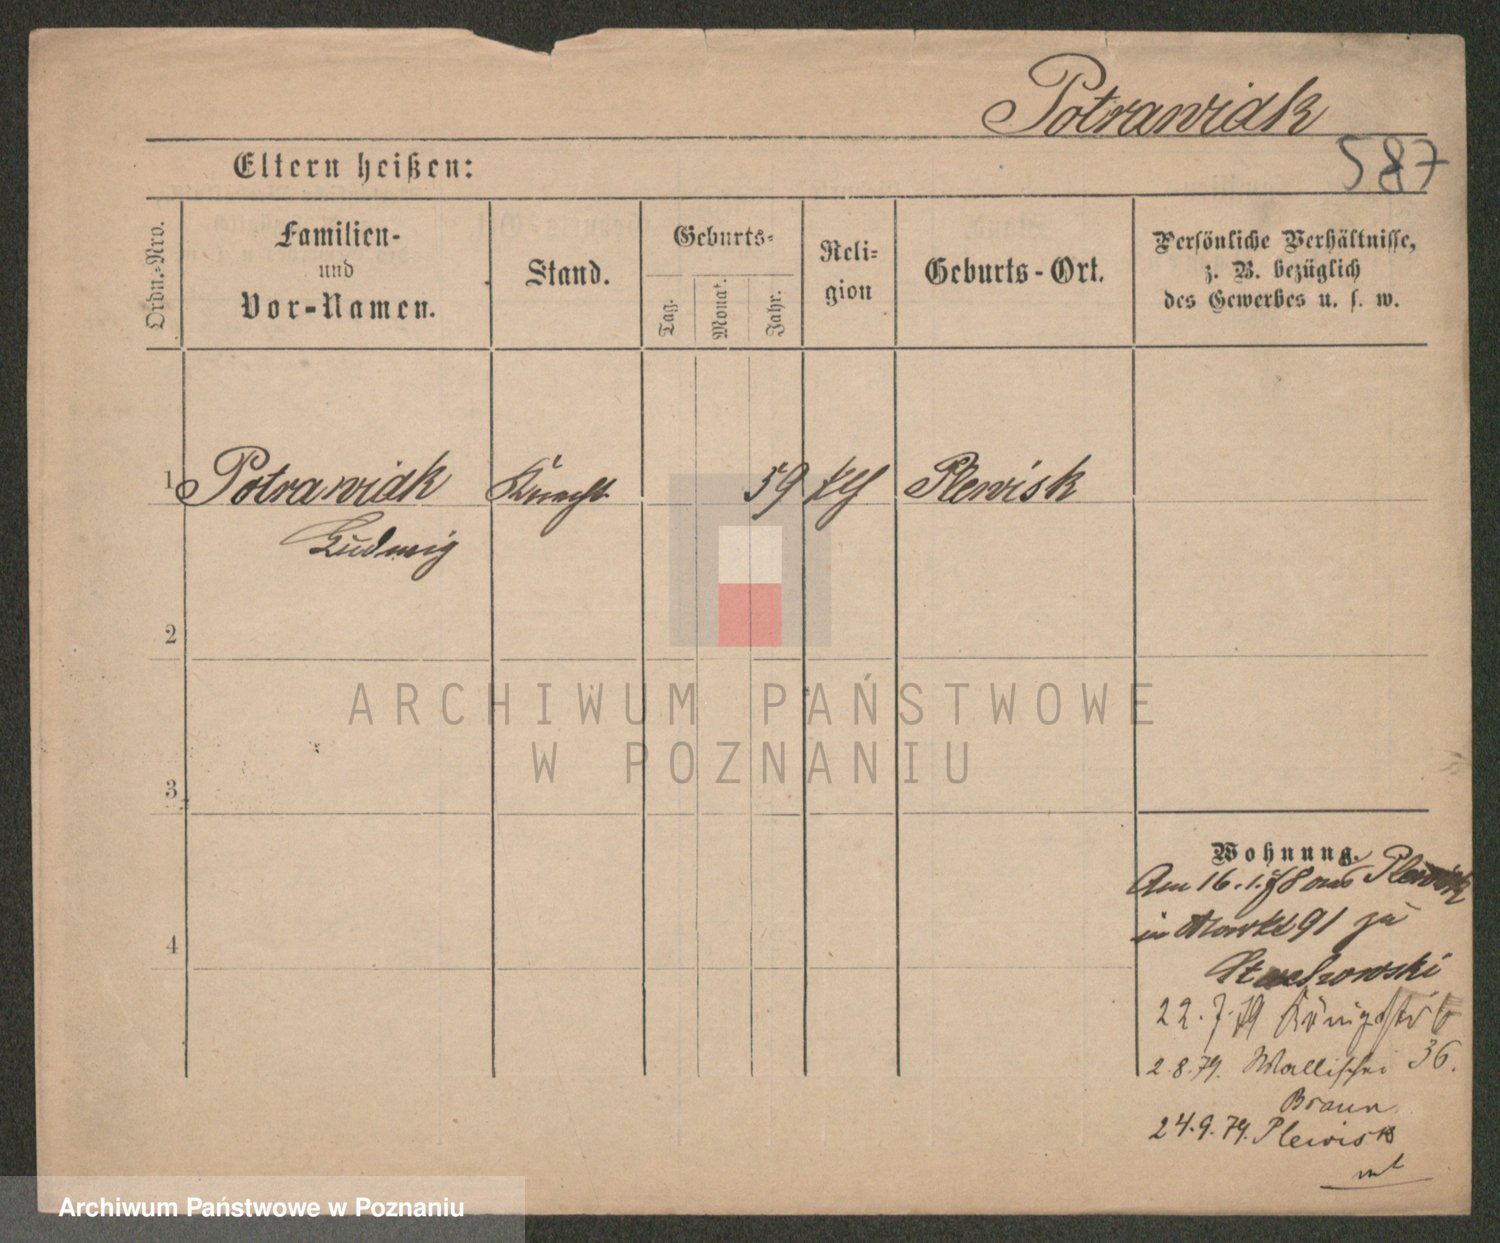 Potrawiak
587
Eltern heißen:
Ordn.-Nro.
Familien-
und
Vor-Namen.
Stand.
Geburts-
Tag.
Monat.
Jahr.
Reli-
gion
Geburts-Ort.
Persönliche Verhältnisse,
z. B. bezüglich
des Gewerbes u. s. w.
1 Potrawiak Knecht 59 kth Plewisk
Ludwig
2
3
4
ARCHIWUM PAŃSTWOWE
W POZNANIU
Wohnung.
Am 16.1.78 aus Plewisk
in Markt 91 zu
Stachowski
22.7.79
2.8.79. Wallischei 36.
Braun
24.9.79. Plewisk
Archiwum Państwowe w Poznaniu